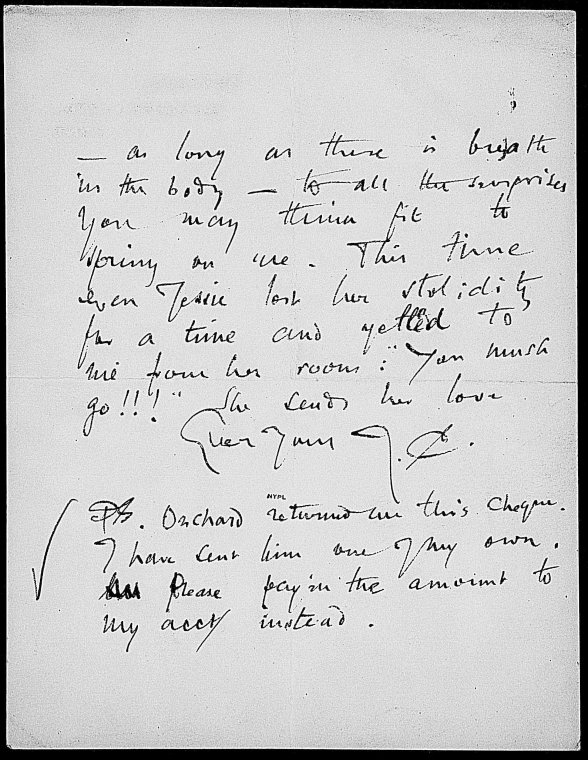 — as long as there is breath
in the body — to all the surprises
you may think fit to
spring on me. This time
even Jessie lost her stolidity
for a time and yelled to
me from her room: "You must
go!!!" She sends her love
Ever Yours J. C.
NYPL
PS. Orchard returned me this cheque.
I have sent him one of my own.
Please pay in the amount to
my acct instead.